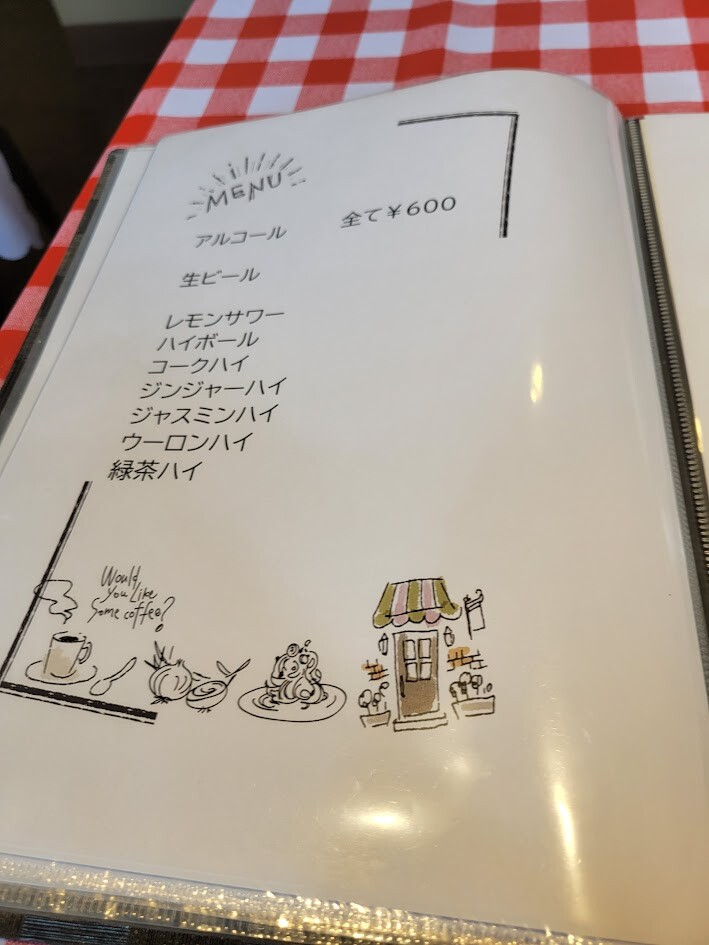 MENU
アルコール 全て¥600
生ビール
レモンサワー
ハイボール
コークハイ
ジンジャーハイ
ジャスミンハイ
ウーロンハイ
緑茶ハイ
Would
You Like
Some coffee?